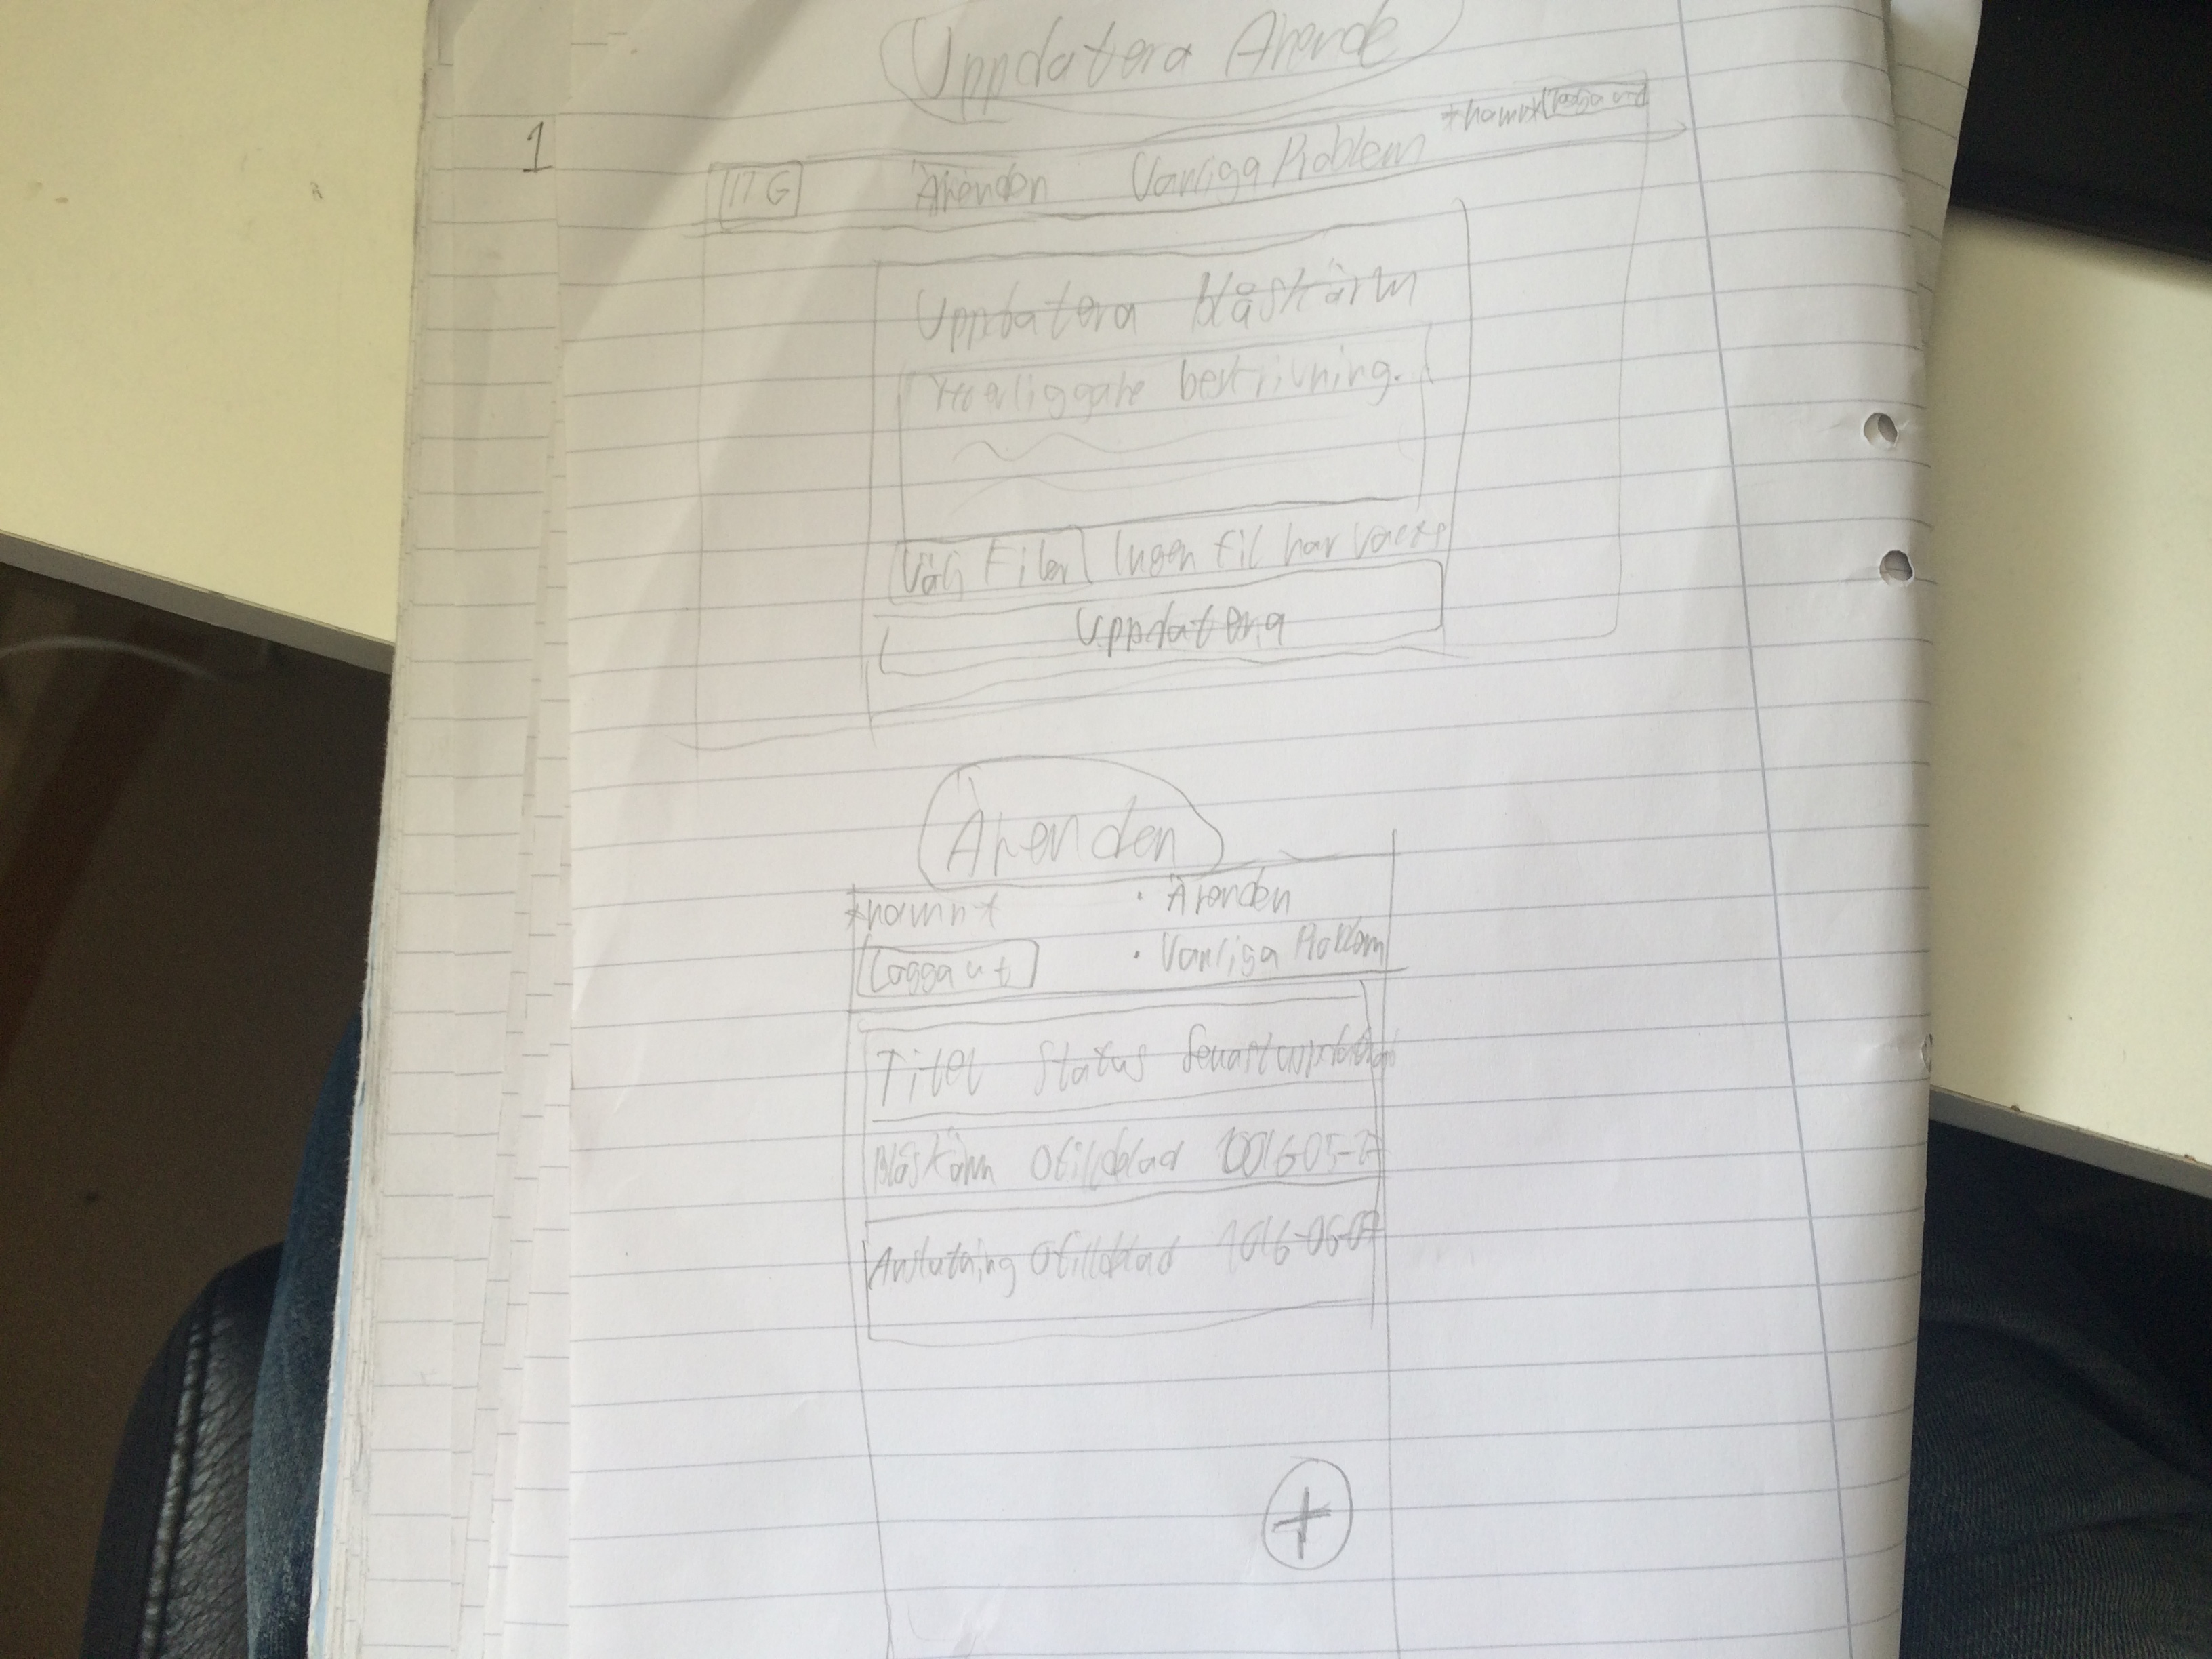 Uppdatera Ärende
1
*namn* Logga ut
ITG Ärenden Vanliga Problem
Uppdatera blåskärm
beskrivning.
Välj Filer Ingen fil har valts
Uppdatera
Ärenden
*namn* · Ärenden
Logga ut · Vanliga Problem
Titel Status Senast uppdaterad
Blåskärm Otilldelad
Anslutning Otilldelad 2016-06-07
+